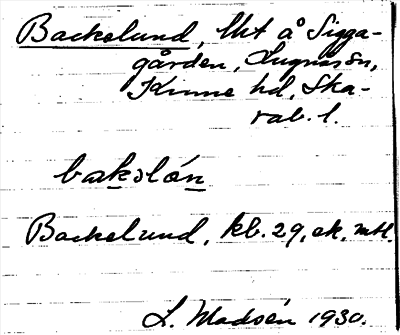 Backelund, lht å Sigga-
gården, Lugnåssn,
Kinne hd, Ska-
rab. l.
baksló̱n
Backelund, kb. 29, ek. mtl.
L. Madsén 1930.